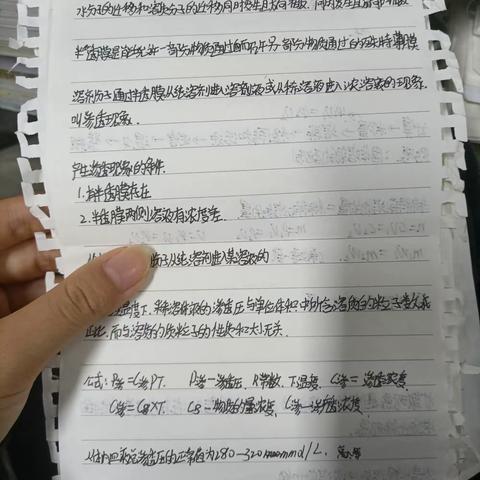 水分子的迁移和溶质分子的迁移同时发生且方向相反
半透膜是指允许一部分物质通过而不允另一部分物质通过的特殊薄膜
溶剂分子通过半透膜从纯溶剂进入溶液或从稀溶液进入浓溶液的现象.
叫渗透现象.
产生渗透现象的条件
1.有半透膜存在
2.半透膜两侧溶液有浓度差.
分子从纯溶剂进入某溶液的
温度下,稀溶液的渗透压与单位体积中所含溶质的粒子数成
正比,而与溶质的质粒子的性质和大小无关.
公式: P渗=C渗RT. P渗—渗透压, R常数, T温度, C渗= 渗透浓度
C渗=CB×T. CB—物质的量浓度, C渗—渗透浓度
人体内血液渗透压的正常值为280—320mmol/L.